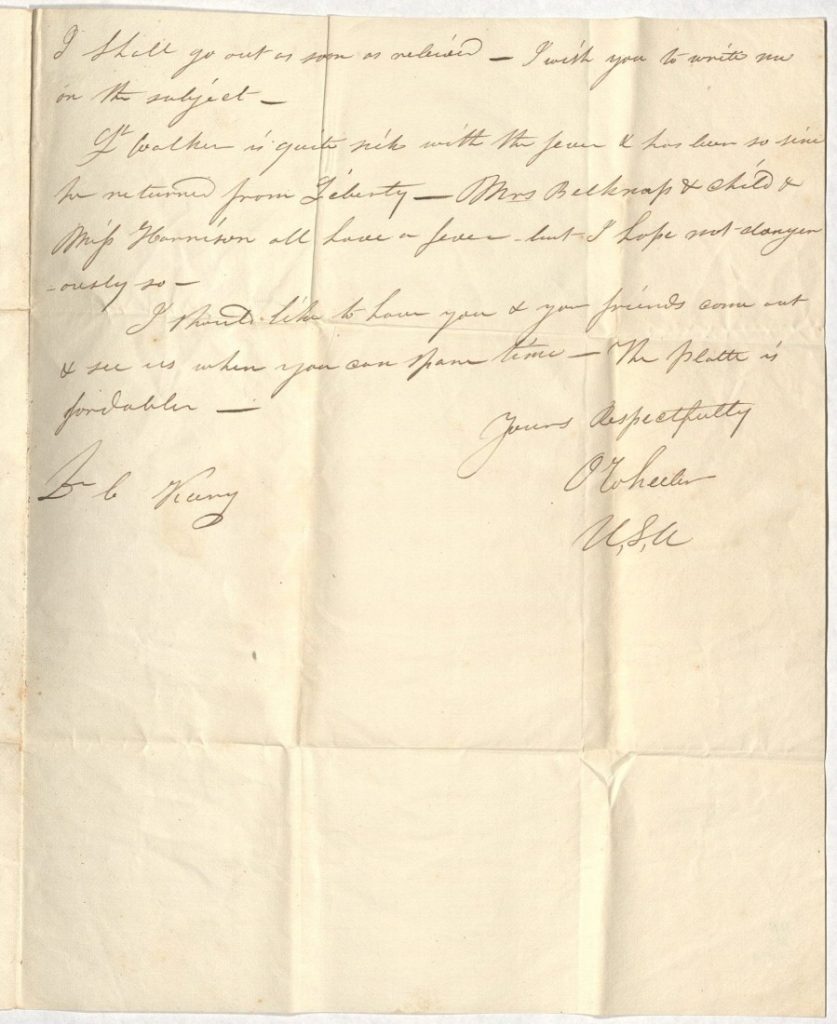 I shall go out as soon as relieved — I wish you to write me
on the subject —
Lt Walker is quite sick with the fever & has been so since
he returned from Liberty — Mrs Belknap & child &
Miss Harrison all have a fever but I hope not danger
-ously so —
I should like to have you & your friends come out
& see us when you can spare time — The Platte is
fordable —
Yours Respectfully
O Wheeler
U.S.A
Dr C